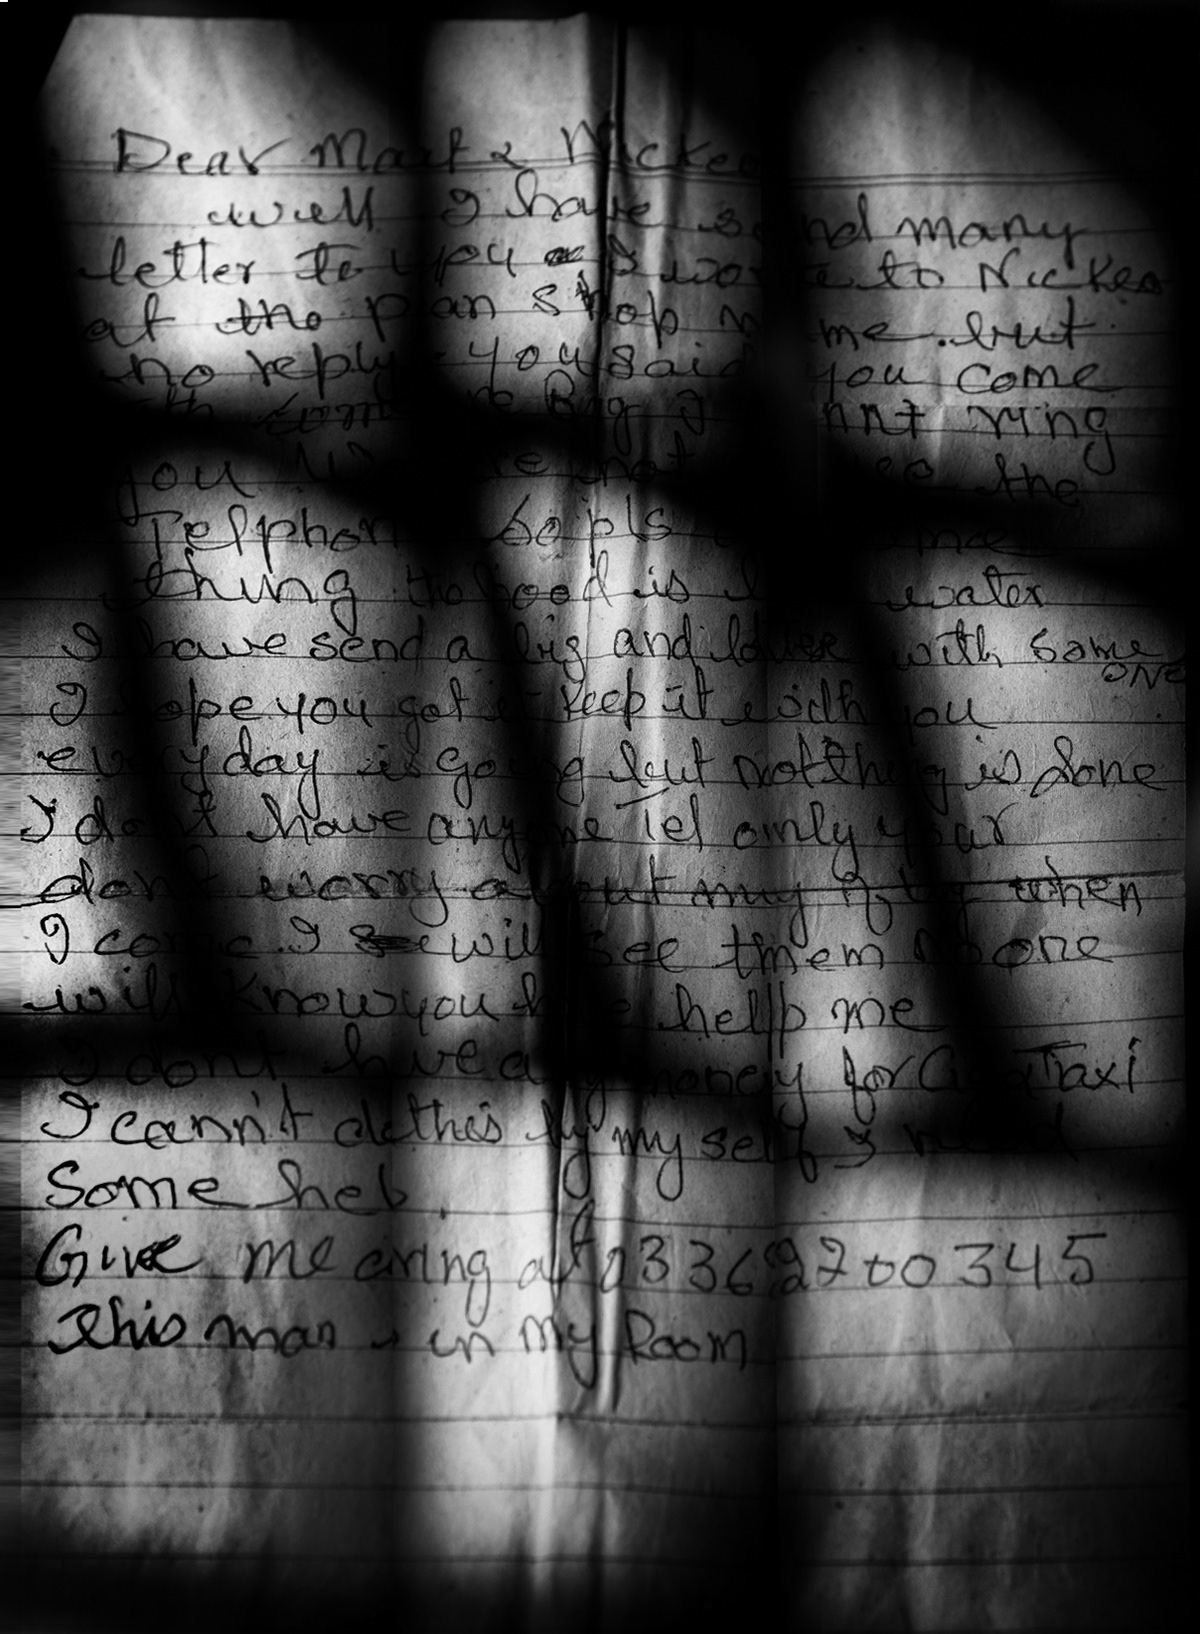 Dear Mart & Nickeo
well I have send many
letter to you I wore to Nickeo
at the pan shop me. but
no reply - you said you come
Big I cannt ring
you not the
Telphon so pls me
thing the food is water
I have send a big and with some
one
I hope you got it keep it with you
everyday is going but notthing is done
I dont have anyone Tel omly your
dont worry about my when
I come I will see tmem none
will know you have hellp me
I dont hve any money for Taxi
I cann't do this by my self I need
Some helb
Give me aring at 0336 2200345
This man in my Room